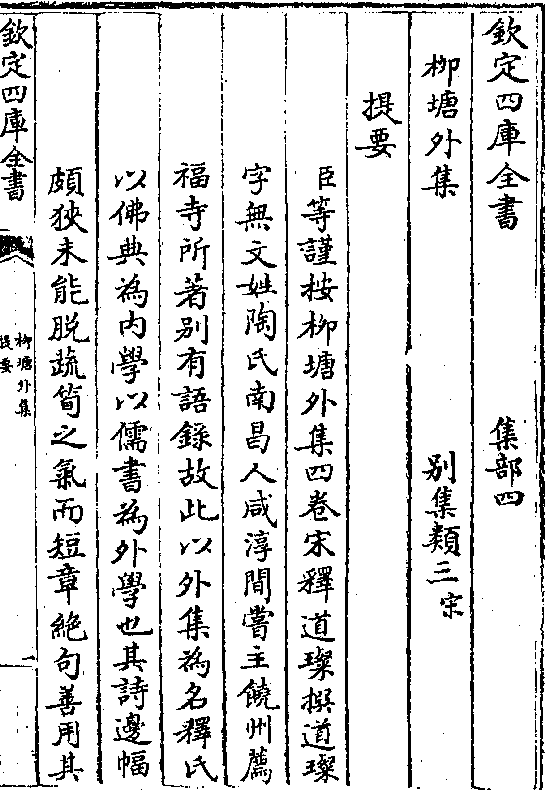 欽定四庫全書 集部四
柳塘外集 别集類三宋
提要
臣等謹按柳塘外集四卷宋釋道璨撰道璨
字無文姓陶氏南昌人咸淳間嘗主饒州薦
福寺所著别有語錄故此以外集為名釋氏
以佛典為内學以儒書為外學也其詩邊幅
頗狹未能脱蔬筍之氣而短章絶句善用其
欽定四庫全書
柳塘外集
提要
一